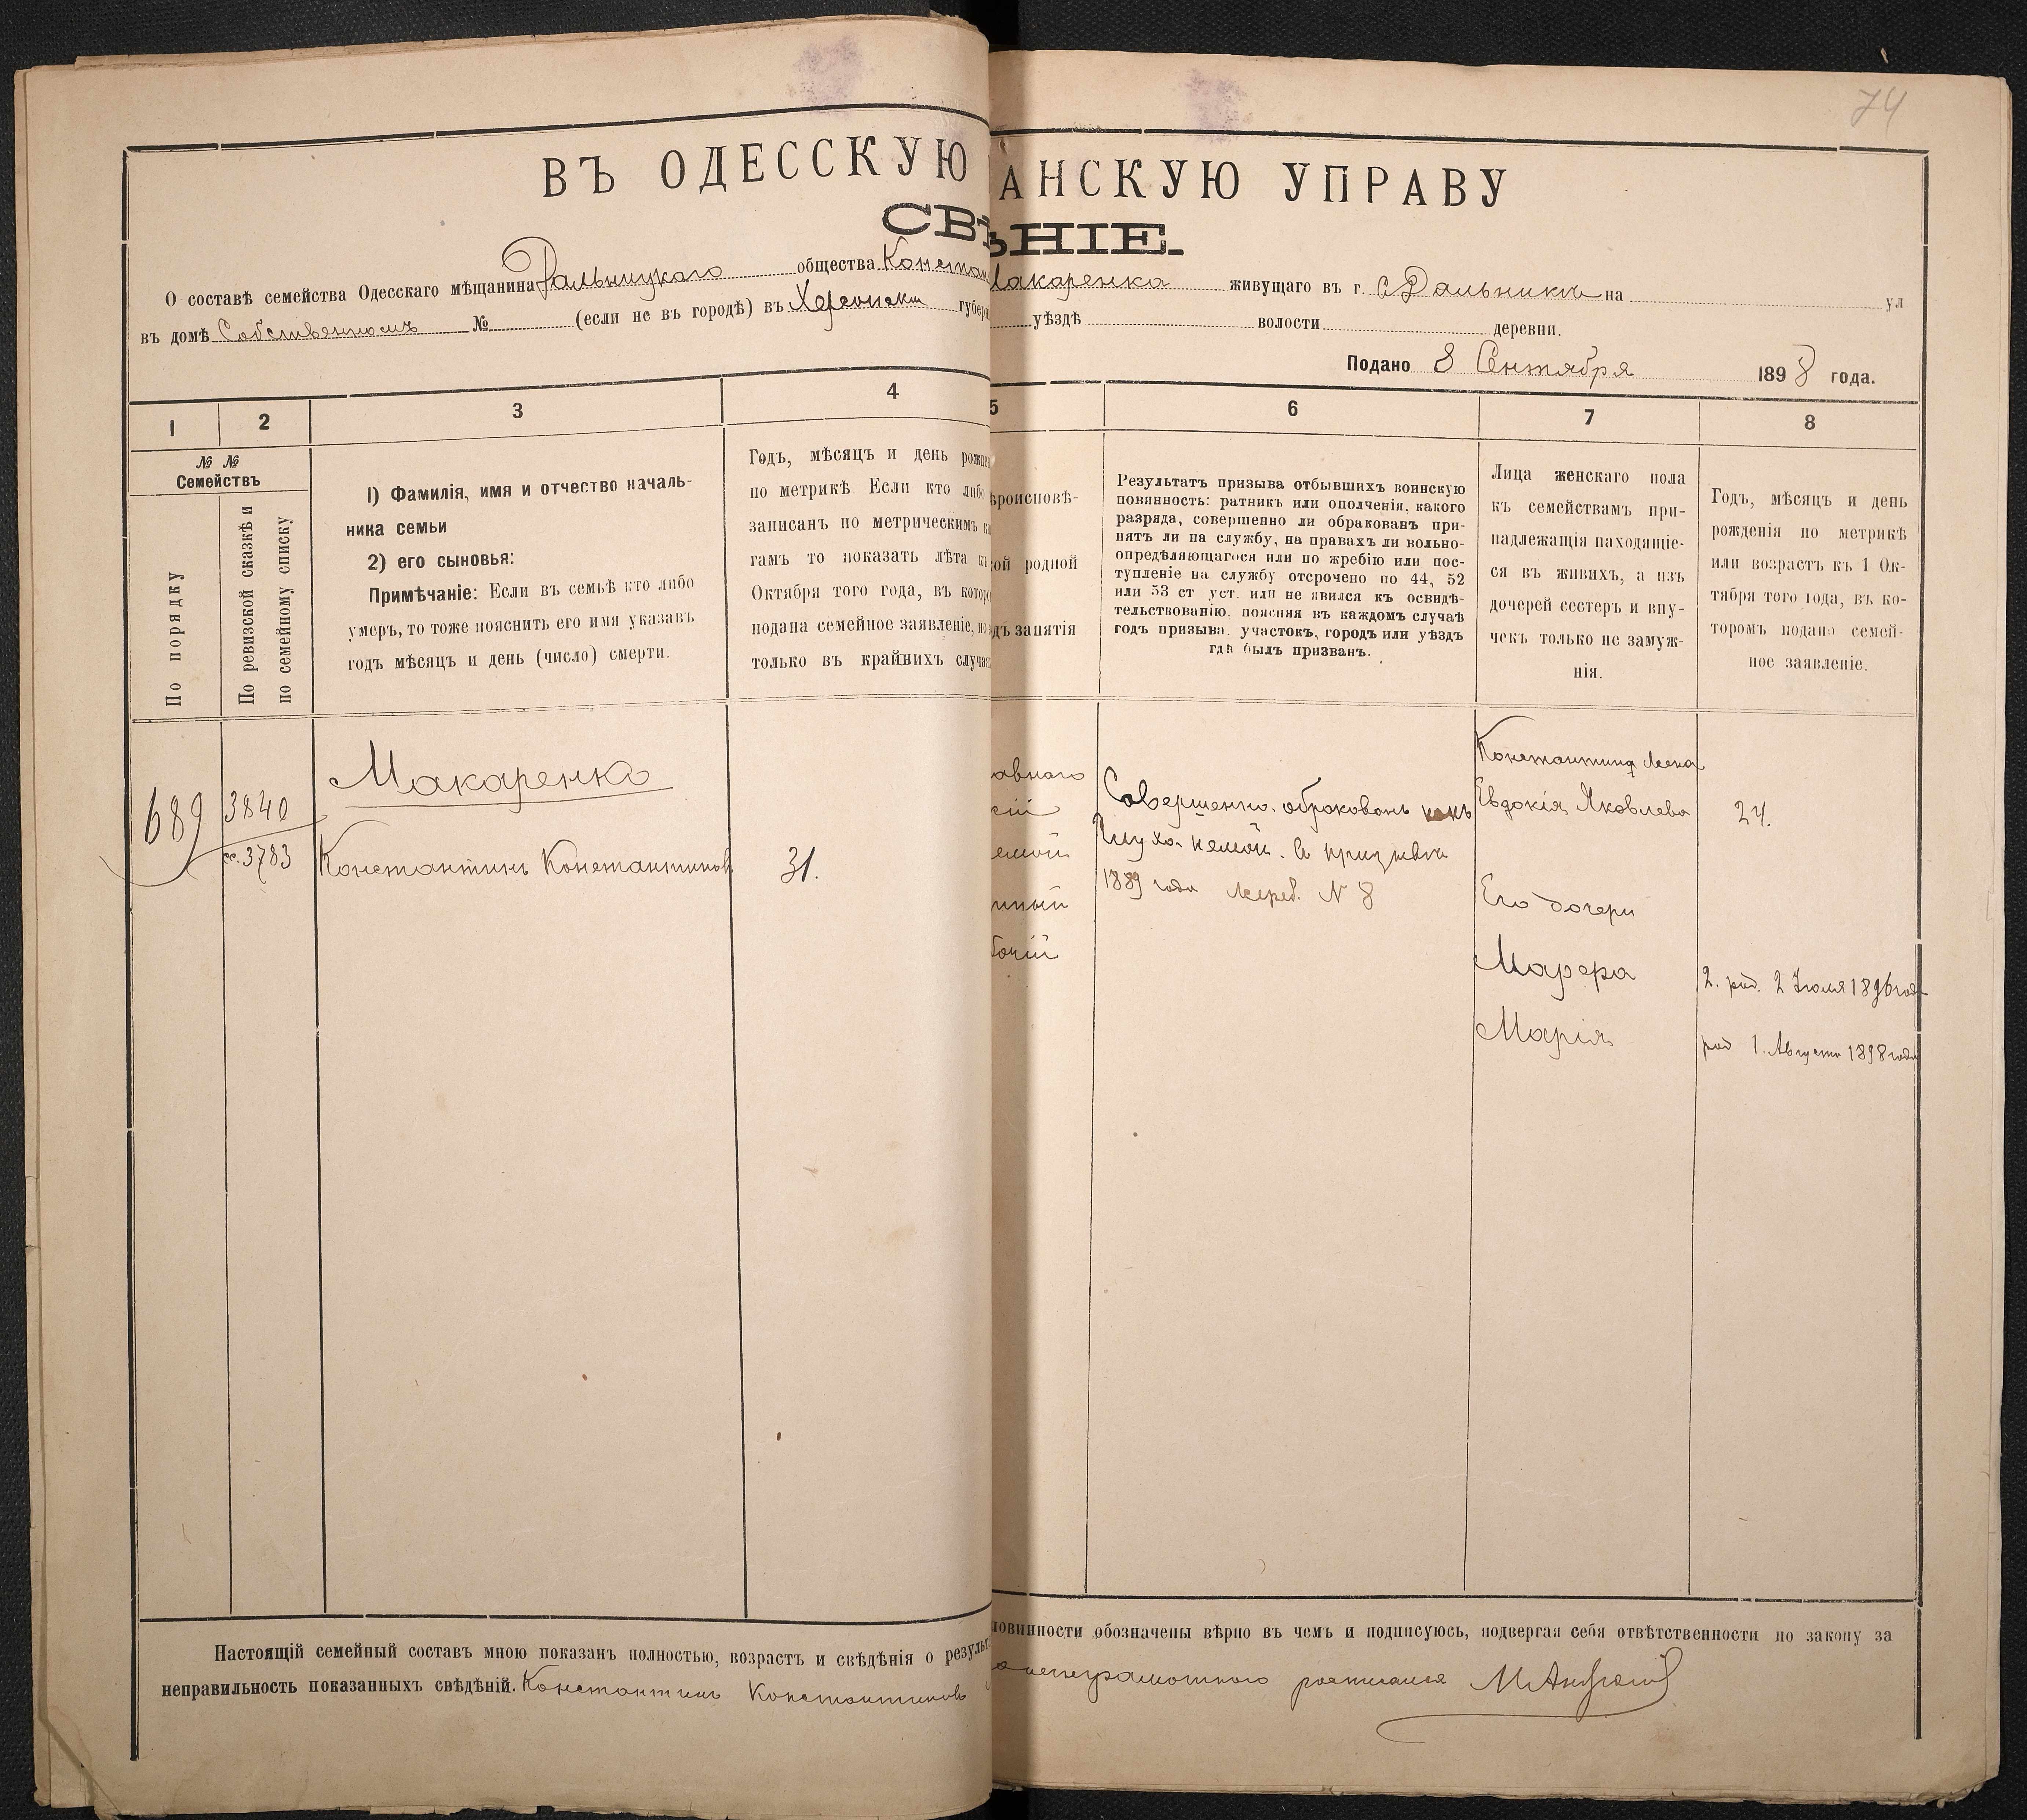 74
ВЪ ОДЕССКУЮ АНСКУЮ УПРАВУ
СВѢНІЕ.
О составѣ семейства Одесскаго мѣщанина Дальницкаго общества Констан Макаренка живущаго въ г. с Дальникъ на ул
въ домѣ Собственномъ № (если не въ городѣ) въ Херсонской губер уѣздѣ волости деревни.
Подано 8 Сентября 1898 года.
1 2 3 4 5 6 7 8
№ №
Семействъ
По порядку
По ревизской сказкѣ и
по семейному списку
1) Фамилія, имя и отчество началь-
ника семьи
2) его сыновья:
Примѣчаніе: Если въ семьѣ кто либо
умеръ, то тоже пояснить его имя указавъ
годъ мѣсяцъ и день (число) смерти.
Годъ, мѣсяцъ и день рожде
по метрикѣ. Если кто либо
записанъ по метрическимъ к
гамъ то показать лѣта къ
Октября того года, въ котор
подана семейное заявленіе, но
только въ крайнихъ случа
ѣроисповѣ-
ой родной
дъ занятія
Результатъ призыва отбывшихъ воинскую
повинность: ратникъ или ополченія, какого
разряда, совершенно ли обракованъ при-
нятъ ли на службу, на правахъ ли вольно-
опредѣляющагося или по жребію или пос-
тупленіе на службу отсрочено по 44, 52
или 53 ст уст. или не явился къ освидѣ-
тельствованію, поясняя въ каждомъ случаѣ
годъ призыва. участокъ, городъ или уѣздъ
гдѣ былъ призванъ.
Лица женскаго пола
къ семействамъ при-
надлежащія находящіе-
ся въ живихъ, а изъ
дочерей сестеръ и вну-
чекъ только не замуж-
нія.
Годъ, мѣсяцъ и день
рожденія по метрикѣ
или возрастъ къ 1 Ок-
тября того года, въ ко-
торомъ подано семей-
ное заявленіе.
689
3840
сс. 3783
Макаренко
Константинъ Константиновъ
31.
авнаго
сій
емой
нный
бочій
Совершенно обракованъ какъ
Глухо-немой. В призывъ
1889 года жереб. N 8
Константина жена
Евдокія Яковлева
24.
Его дочери
Марфа
2. род. 2 Іюля 1896 года
Марія
род 1. Августа 1898 года
Настоящій семейный составъ мною показанъ полностью, возрастъ и свѣдѣнія о резуль повинности обозначены вѣрно въ чемъ и подписуюсь, подвергая себя отвѣтственности по закону за
неправильность показанныхъ свѣдѣній. Константинъ Константиновъ а неграмотного росписался